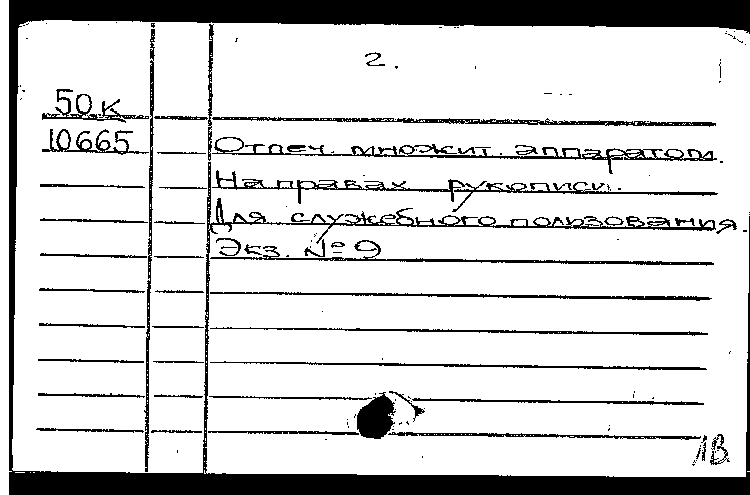 2.
50К
10665
Отпеч. множит. аппаратом.
На правах рукописи.
Для служебного пользования.
Экз. № 9
ЛВ.